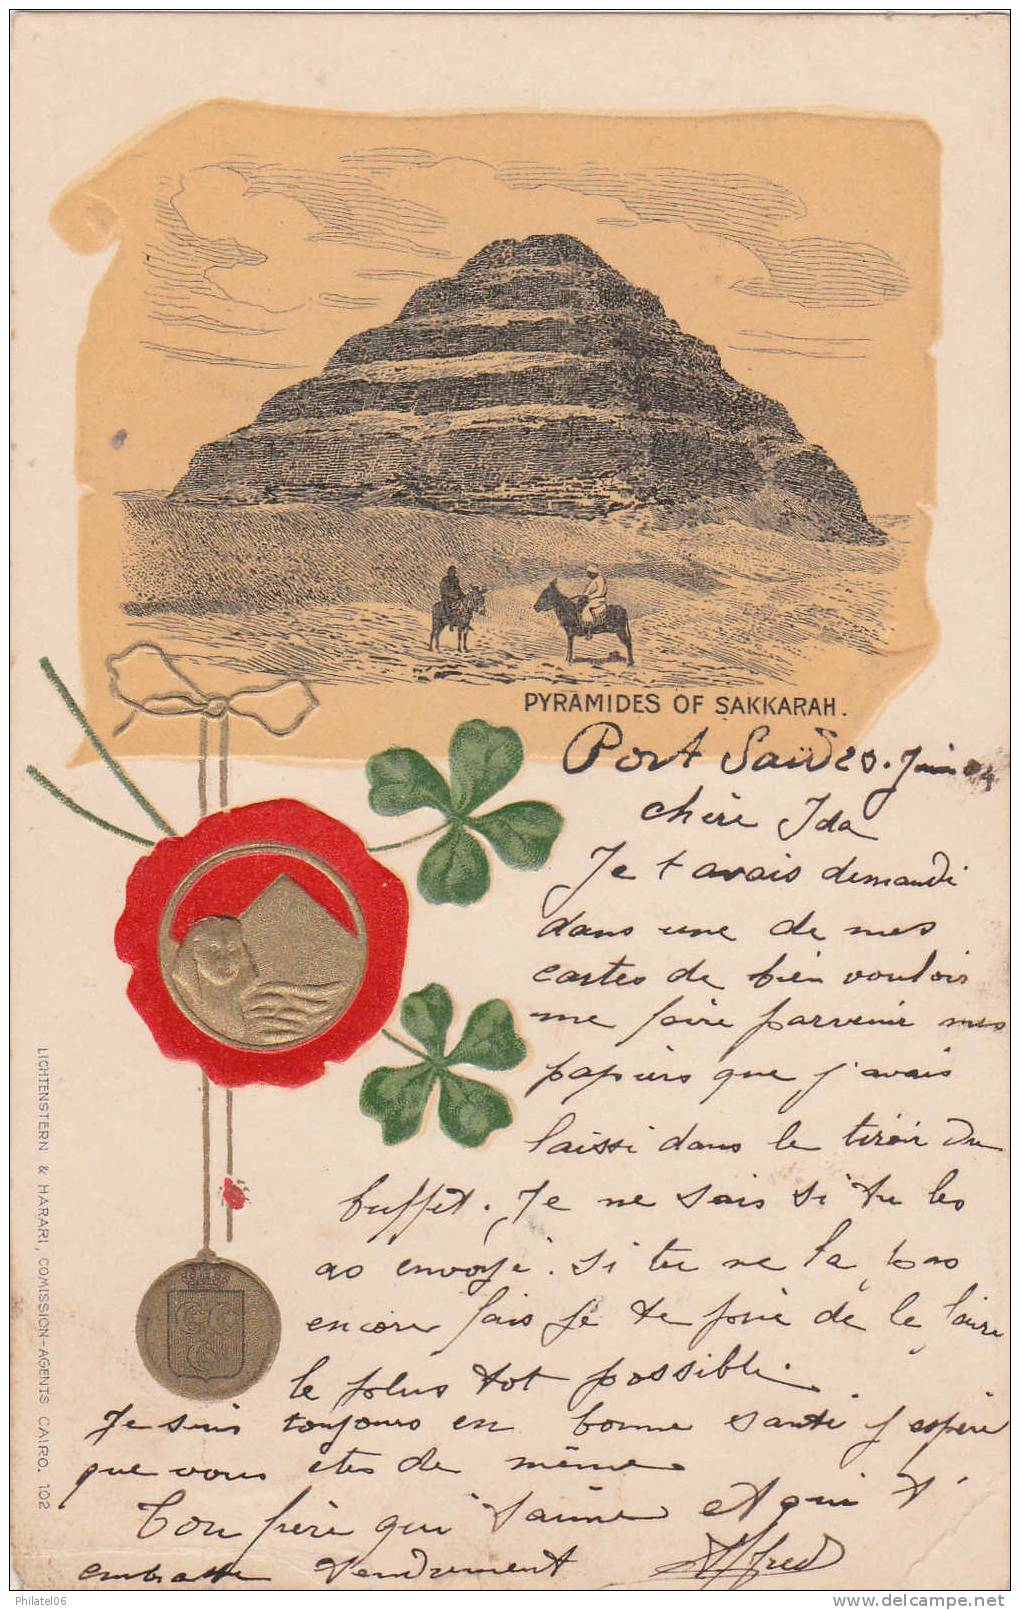 PYRAMIDES OF SAKKARAH.
Port Saïd 20. Juin 04
chère Ida
Je t avais demandé
dans une de mes
cartes de bien vouloir
me faire parvenir mes
papiers que j'avais
laissé dans le tiroir du
buffet. Je ne sais si tu les
as envoyé. si tu ne la pas
encore fais je te prie de le faire
le plus tot possible.
Je suis toujours en bonne santé j espère
que vous êtes de même
Ton frère qui t'aime et qui t'
embrasse tendrement Alfred
LICHTENSTERN & HARARI, COMISSION-AGENTS CAIRO. 102
Philatel06
delcampe.net